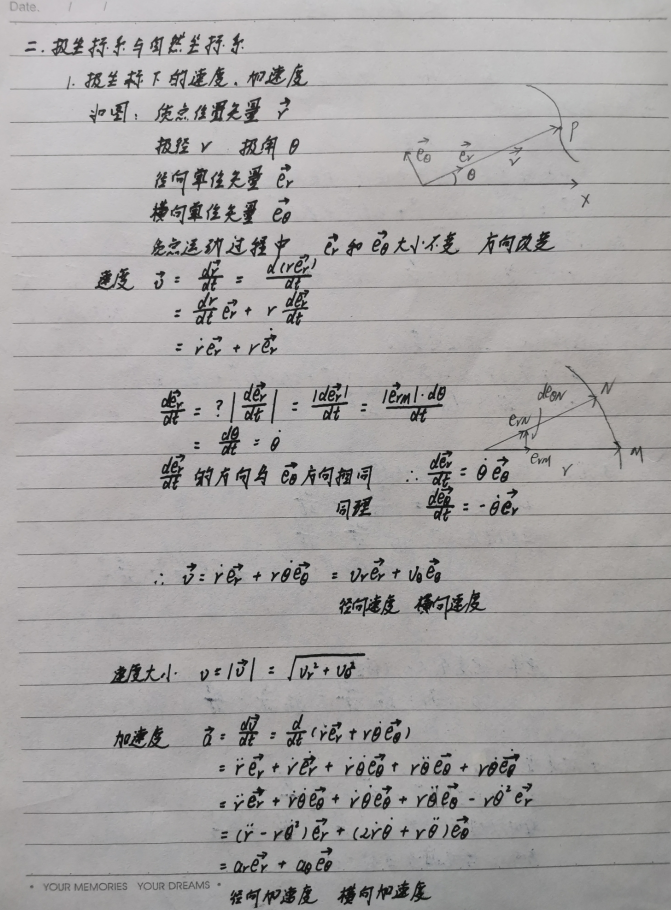 Date. / /
二.极坐标系与自然坐标系
1.极坐标下的速度、加速度
如图:质点位置矢量 r⃗
极径 r 极角 θ
径向单位矢量 e⃗r
横向单位矢量 e⃗θ
e⃗θ e⃗r r⃗ θ P X
质点运动过程中 e⃗r 和 e⃗θ 大小不变 方向改变
速度 v⃗ = dr⃗/dt = d(re⃗r)/dt
= dr/dt e⃗r + r de⃗r/dt
= ṙe⃗r + rė⃗r
de⃗r/dt = ? |de⃗r/dt| = |de⃗r|/dt = |e⃗rM|·dθ/dt
= dθ/dt = θ̇
erN deθN N erM r M
de⃗r/dt 的方向与 e⃗θ 方向相同 ∴ de⃗r/dt = θ̇e⃗θ
同理 de⃗θ/dt = -θ̇e⃗r
∴ v⃗ = ṙe⃗r + rθ̇e⃗θ = vre⃗r + vθe⃗θ
径向速度 横向速度
速度大小 v = |v⃗| = √(vr² + vθ²)
加速度 a⃗ = dv⃗/dt = d/dt (ṙe⃗r + rθ̇e⃗θ)
= r̈e⃗r + ṙė⃗r + ṙθ̇e⃗θ + rθ̈e⃗θ + rθ̇ė⃗θ
= r̈e⃗r + ṙθ̇e⃗θ + ṙθ̇e⃗θ + rθ̈e⃗θ - rθ̇²er
= (r̈ - rθ̇²)e⃗r + (2ṙθ̇ + rθ̈)e⃗θ
= are⃗r + aθe⃗θ
径向加速度 横向加速度
• YOUR MEMORIES YOUR DREAMS •